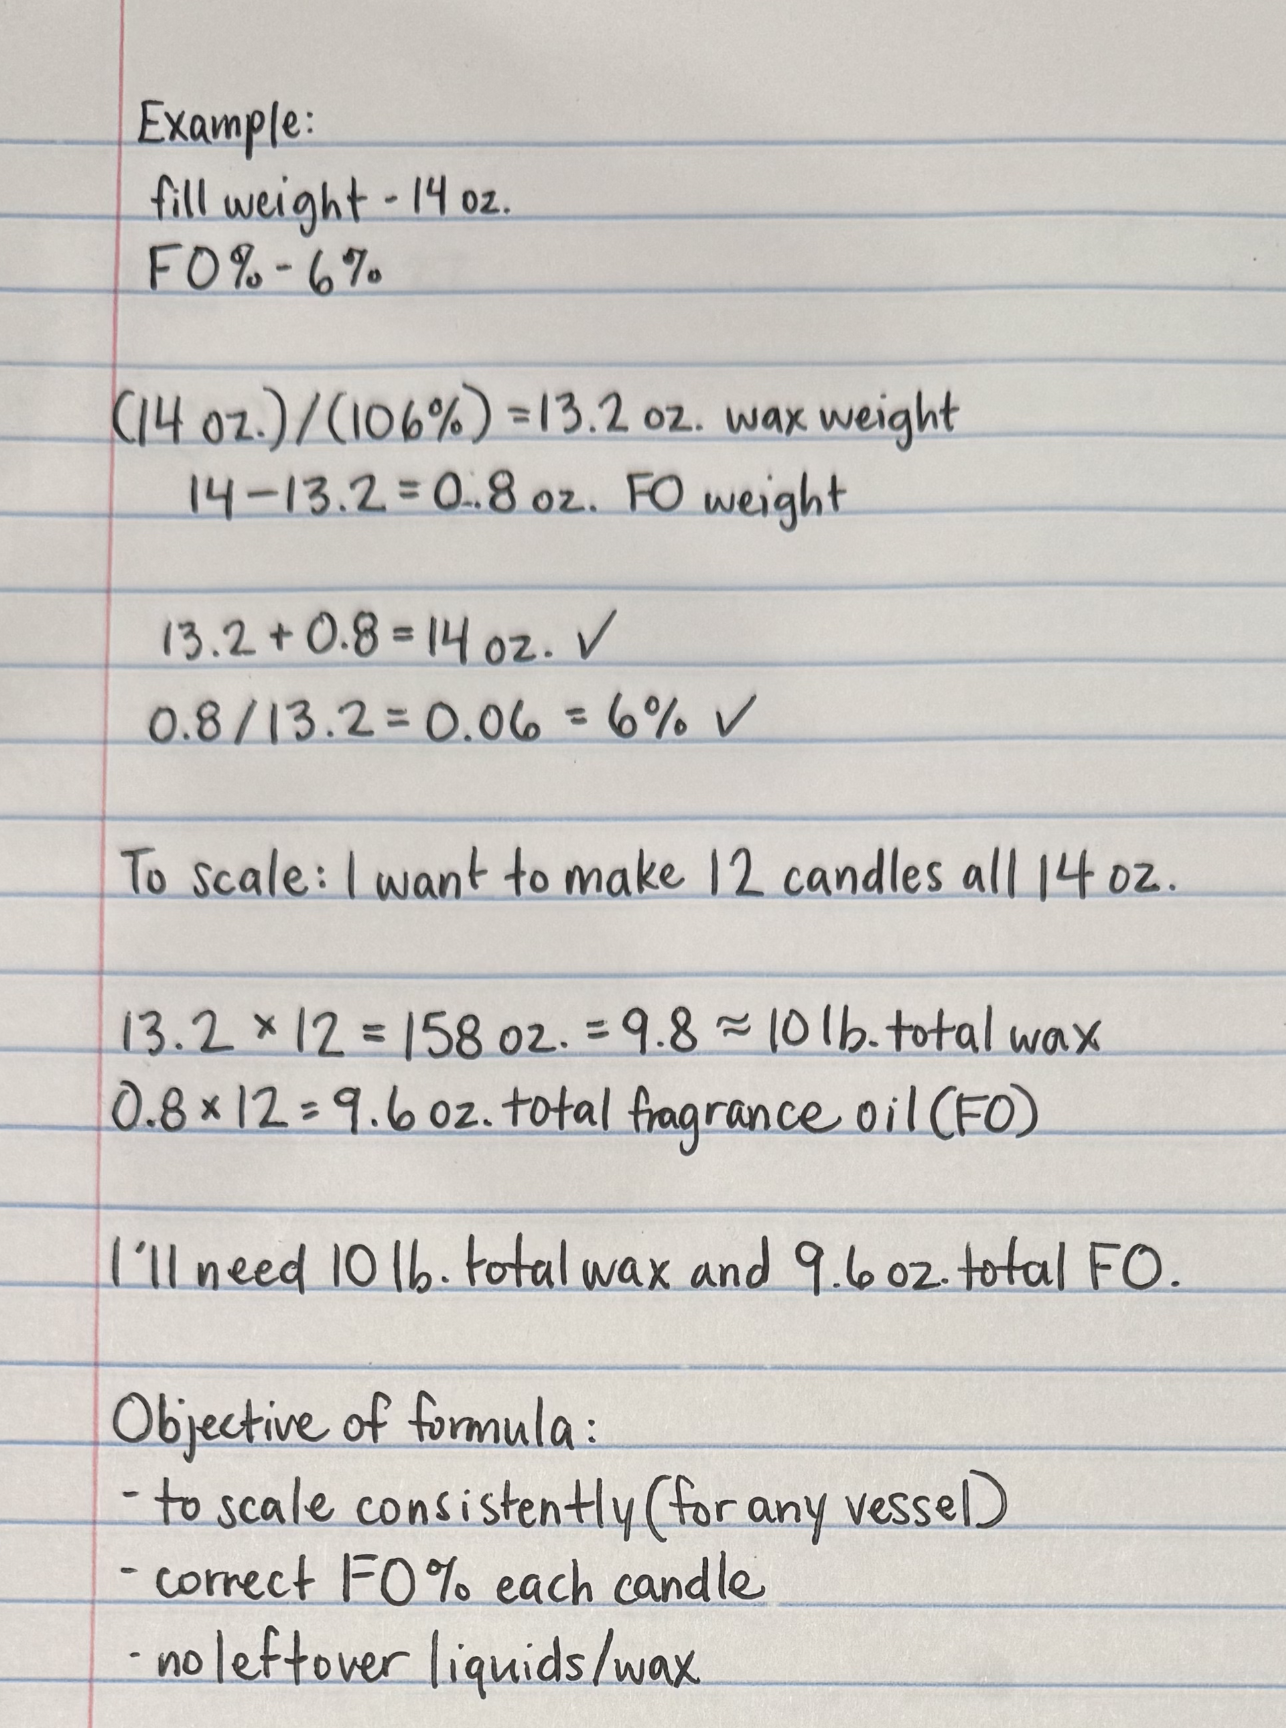 Example:
fill weight - 14 oz.
FO% - 6%
(14 oz.)/(106%) = 13.2 oz. wax weight
14 - 13.2 = 0.8 oz. FO weight
13.2 + 0.8 = 14 oz. ✓
0.8/13.2 = 0.06 = 6% ✓
To scale: I want to make 12 candles all 14 oz.
13.2 × 12 = 158 oz. = 9.8 ≈ 10 lb. total wax
0.8 × 12 = 9.6 oz. total fragrance oil (FO)
I'll need 10 lb. total wax and 9.6 oz. total FO.
Objective of formula:
- to scale consistently (for any vessel)
- correct FO% each candle
- no leftover liquids/wax